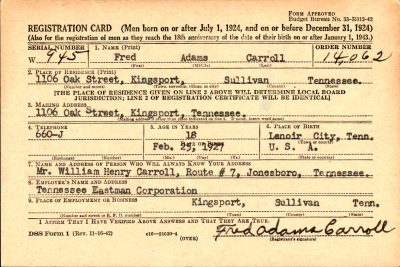 Form Approved
Budget Bureau No. 33-R012-42
REGISTRATION CARD (Men born on or after July 1, 1924, and on or before December 31, 1924)
(Also for the registration of men as they reach the 18th anniversary of the date of their birth on or after January 1, 1943.)
SERIAL NUMBER 1. NAME (Print) ORDER NUMBER
W 945 Fred Adams Carroll 14062
(First) (Middle) (Last)
2. PLACE OF RESIDENCE (Print)
1106 Oak Street, Kingsport, Sullivan Tennessee.
(Number and street) (Town, township, village, or city) (County) (State)
[THE PLACE OF RESIDENCE GIVEN ON LINE 2 ABOVE WILL DETERMINE LOCAL BOARD
JURISDICTION; LINE 2 OF REGISTRATION CERTIFICATE WILL BE IDENTICAL]
3. MAILING ADDRESS
1106 Oak Street, Kingsport, Tennessee.
4. TELEPHONE 5. AGE IN YEARS 6. PLACE OF BIRTH
660-J 18 Lenoir City, Tenn.
DATE OF BIRTH
Feb. 25, 1927 U. S. A.
7. NAME AND ADDRESS OF PERSON WHO WILL ALWAYS KNOW YOUR ADDRESS
Mr. William Henry Carroll, Route # 7, Jonesboro, Tennessee.
8. EMPLOYER'S NAME AND ADDRESS
Tennessee Eastman Corporation
9. PLACE OF EMPLOYMENT OR BUSINESS
Kingsport, Sullivan Tenn.
(Number and street or R. F. D. number) (Town) (County) (State)
I AFFIRM THAT I HAVE VERIFIED ABOVE ANSWERS AND THAT THEY ARE TRUE.
DSS Form 1 (Rev. 11-16-42) (OVER) Fred Adams Carroll
(Registrant's signature)